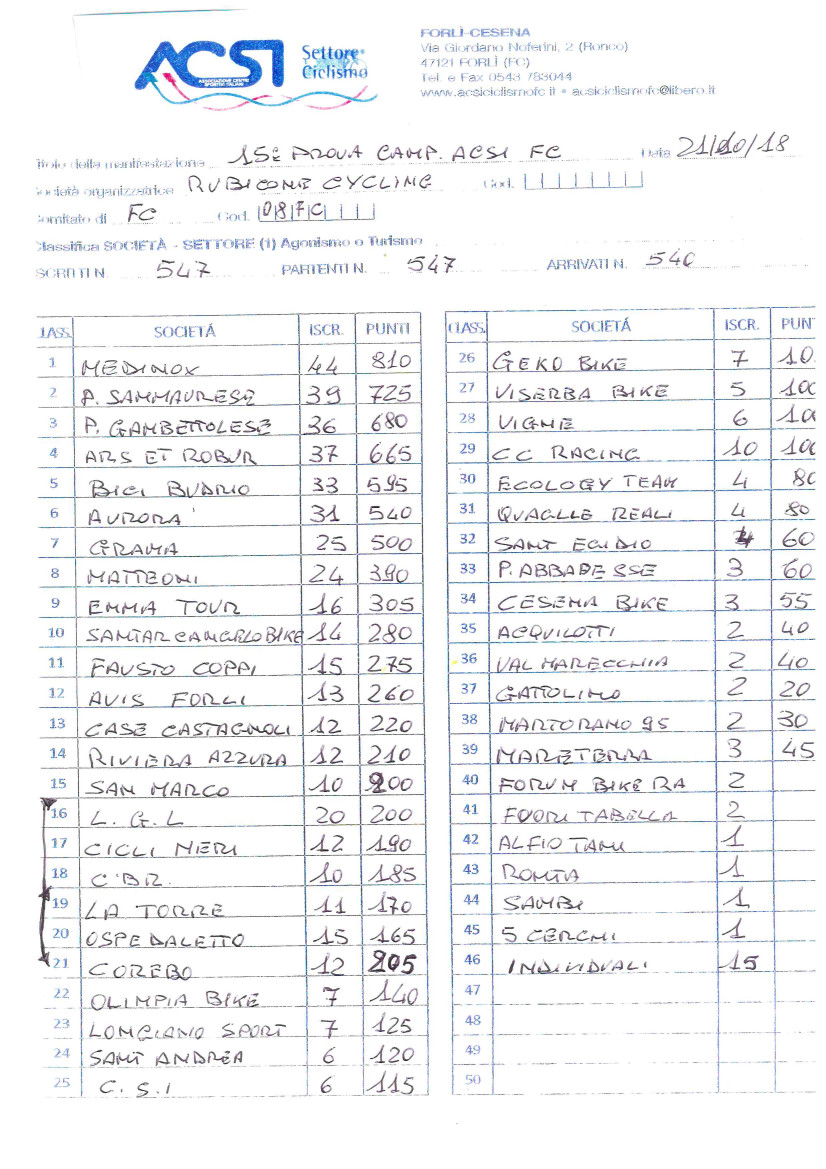 ACSI Settore Ciclismo
ASSOCIAZIONE CENTRI SPORTIVI ITALIANI
FORLÌ-CESENA
Via Giordano Noferini, 2 (Ronco)
47121 FORLÌ (FC)
Tel. e Fax 0543 783044
www.acsiciclismofc.it • acsiciclismofc@libero.it
itolo della manifestazione 15E PROVA CAMP. ACSI FC Data 21/10/18
ocietà organizzatrice RUBICONE CYCLING Cod.
omitato di FC Cod. 087C
lassifica SOCIETÀ - SETTORE (1) Agonismo o Turismo
SCRITTI N. 547 PARTENTI N. 547 ARRIVATI N. 540
LASS. SOCIETÁ ISCR. PUNTI
1 MEDINOX 44 810
2 P. SAMMAURESE 39 725
3 P. GAMBETTOLESE 36 680
4 ARS ET ROBUR 37 665
5 BICI BUDRIO 33 595
6 AURORA 31 540
7 GRAMA 25 500
8 MATTEONI 24 390
9 EMMA TOUR 16 305
10 SANTARCANGELO BIKE 14 280
11 FAUSTO COPPI 15 275
12 AVIS FORLI 13 260
13 CASE CASTAGNOLI 12 220
14 RIVIERA AZZURA 12 210
15 SAN MARCO 10 200
16 L. G. L 20 200
17 CICLI NERI 12 190
18 C.BR. 10 185
19 LA TORRE 11 170
20 OSPEDALETTO 15 165
21 COREBO 12 205
22 OLIMPIA BIKE 7 140
23 LONGIANO SPORT 7 125
24 SANT ANDREA 6 120
25 C. S. I 6 115
CLASS. SOCIETÁ ISCR. PUN
26 GEKO BIKE 7 10
27 VISERBA BIKE 5 100
28 VIGNE 6 10
29 CC RACING 10 100
30 ECOLOGY TEAM 4 80
31 QUAGLLE REALI 4 80
32 SANT EGIDIO 4 60
33 P. ABBADESSE 3 60
34 CESENA BIKE 3 55
35 ACQUILOTTI 2 40
36 VAL MARECCHIA 2 40
37 GATTOLINO 2 20
38 MARTORANO 95 2 30
39 MARETERRA 3 45
40 FORUM BIKE RA 2
41 FUORI TABELLA 2
42 ALFIO TANI 1
43 RONTA 1
44 SAMBI 1
45 5 CERCHI 1
46 INDIVIDUALI 15
47
48
49
50